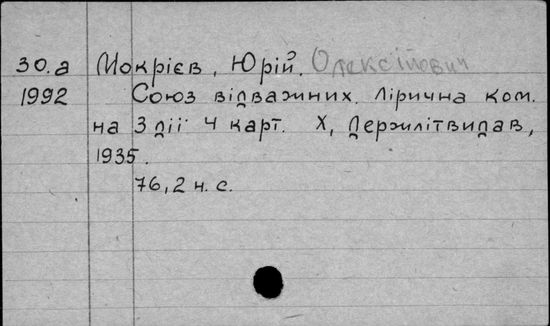 30.а Мокрієв, Юрій. Олексійович
1992 Союз відважних. Лірична ком.
на 3 дії 4 карт. Х, Держлітвидав,
1935.
76,2 н. с.